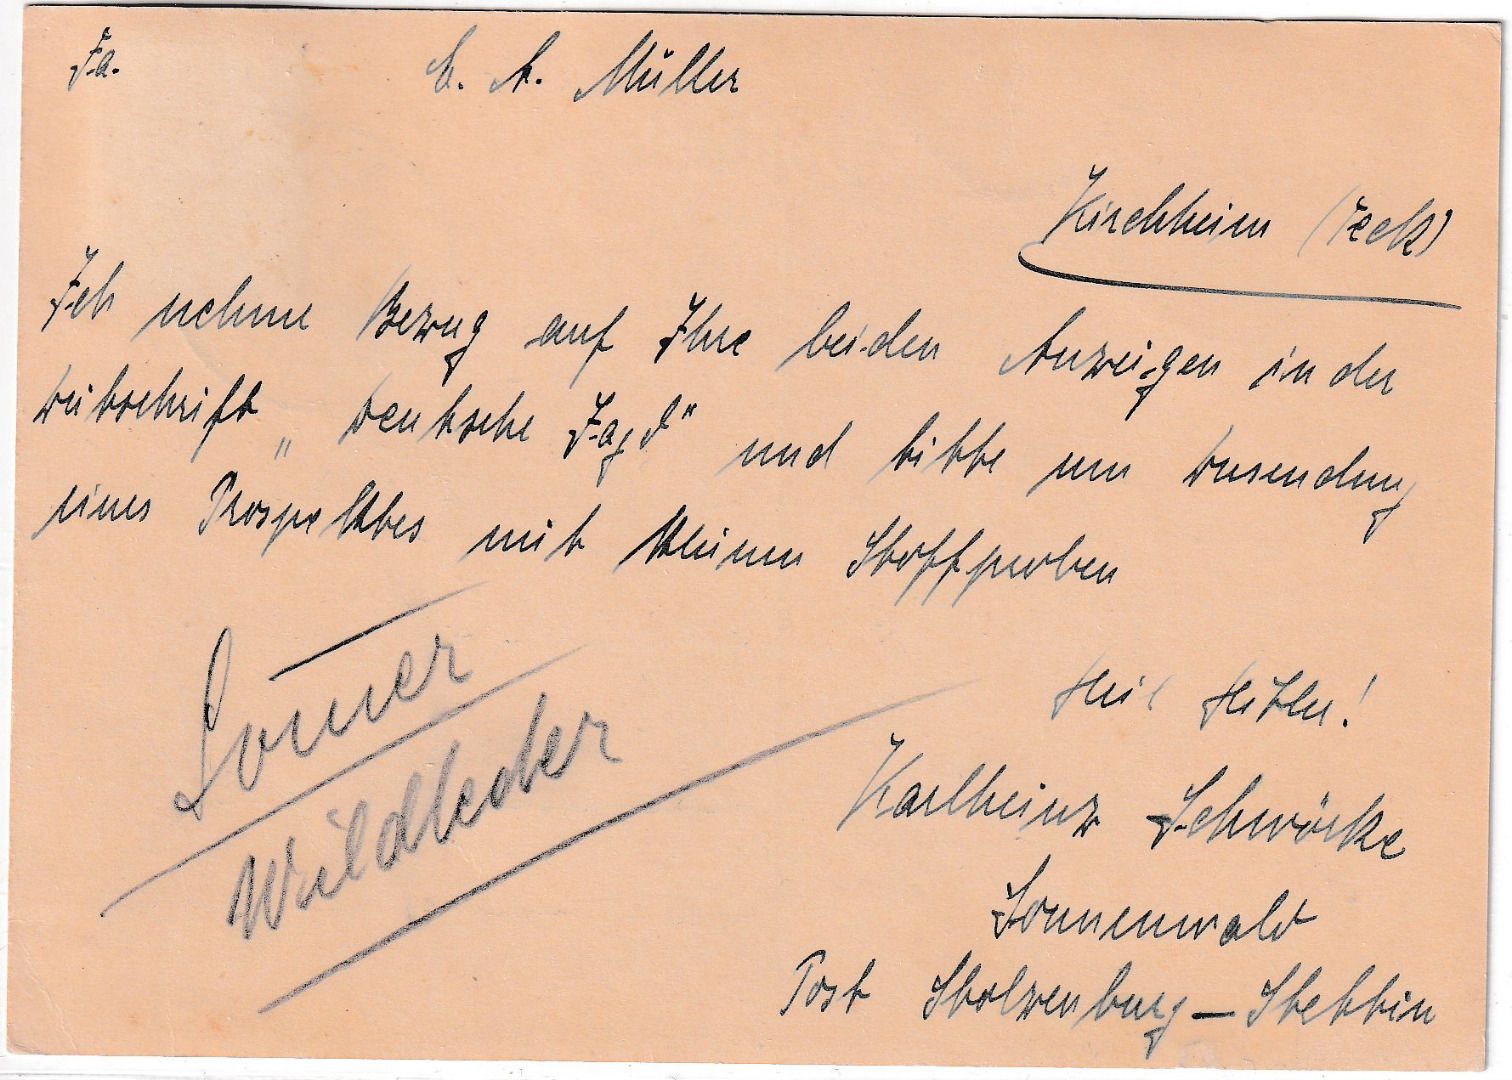 Fa. C. A. Müller
Kirchheim (Teck)
Ich nehme Bezug auf Ihre beiden Anzeigen in der
Zeitschrift „Deutsche Jagd" und bitte um Zusendung
eines Prospektes mit kleinen Stoffproben
Heil Hitler!
Karlheinz Schwörke
Sonnenwald
Post Stolzenburg – Stettin
Wildleder